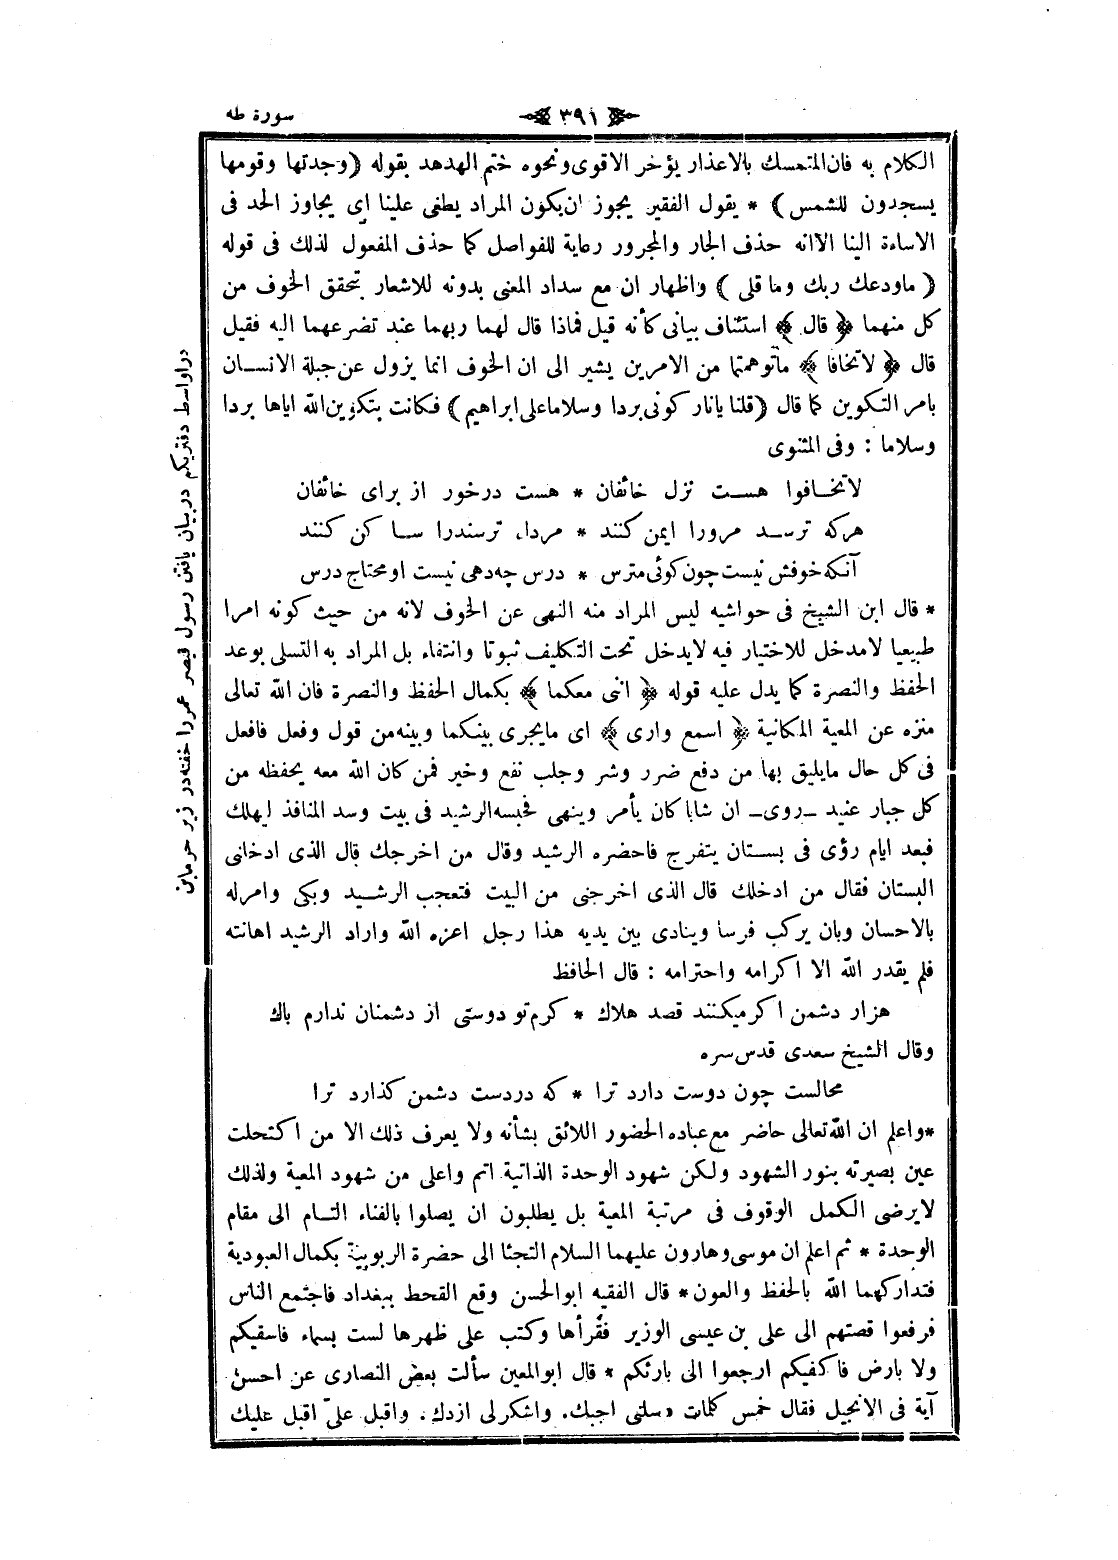 سورة طه
٣٩١
الكلام به فان المتمسك بالاعذار يؤخر الاقوى ونحوه ختم الهدهد بقوله (وجدتها وقومها
يسجدون للشمس) * يقول الفقير يجوز ان يكون المراد يطغى علينا اى يجاوز الحد فى
الاساءة الينا الا انه حذف الجار والمجرور رعاية للفواصل كما حذف المفعول لذلك فى قوله
(ماودعك ربك وما قلى) واظهار ان مع سداد المعنى بدونه للاشعار بتحقق الخوف من
كل منهما ﴿ قال ﴾ استئناف بيانى كأنه قيل فماذا قال لهما ربهما عند تضرعهما اليه فقيل
قال ﴿ لاتخافا ﴾ ماتوهمتما من الامرين يشير الى ان الخوف انما يزول عن جبلة الانسان
بامر التكوين كما قال (قلنا يانار كونى بردا وسلاما على ابراهيم) فكانت بتكوين الله اياها بردا
وسلاما : وفى المثنوى
لاتخافوا هست نزل خائفان * هست درخور از براى خائفان
هركه ترسد مرورا ايمن كنند * مرداء ترسندرا ساكن كنند
آنكه خوفش نيست چون كوئى مترس * درس چه دهى نيست او محتاج درس
* قال ابن الشيخ فى حواشيه ليس المراد منه النهى عن الخوف لانه من حيث كونه امرا
طبيعيا لامدخل للاختيار فيه لايدخل تحت التكليف ثبوتا وانتفاء بل المراد به التسلى بوعد
الحفظ والنصرة كما يدل عليه قوله ﴿ اننى معكما ﴾ بكمال الحفظ والنصرة فان الله تعالى
منزه عن المعية المكانية ﴿ اسمع وارى ﴾ اى مايجرى بينكما وبينه من قول وفعل فافعل
فى كل حال مايليق بها من دفع ضرر وشر وجلب نفع وخير فمن كان الله معه يحفظه من
كل جبار عنيد ـ روى ـ ان شابا كان يأمر وينهى فحبسه الرشيد فى بيت وسد المنافذ ليهلك
فبعد ايام رؤى فى بستان يتفرج فاحضره الرشيد وقال من اخرجك قال الذى ادخلنى
البستان فقال من ادخلك قال الذى اخرجنى من البيت فتعجب الرشيد وبكى وامرله
بالاحسان وبان يركب فرسا وينادى بين يديه هذا رجل اعزه الله واراد الرشيد اهانته
فلم يقدر الله الا اكرامه واحترامه : قال الحافظ
هزار دشمن اكرميكنند قصد هلاك * كرم تو دوستى از دشمنان ندارم باك
وقال الشيخ سعدى قدس سره
محالست چون دوست دارد ترا * كه دردست دشمن كذارد ترا
*واعلم ان الله تعالى حاضر مع عباده الحضور اللائق بشأنه ولا يعرف ذلك الا من اكتحلت
عين بصيرته بنور الشهود ولكن شهود الوحدة الذاتية اتم واعلى من شهود المعية ولذلك
لايرضى الكمل الوقوف فى مرتبة المعية بل يطلبون ان يصلوا بالفناء التام الى مقام
الوحدة * ثم اعلم ان موسى وهارون عليهما السلام التجئا الى حضرة الربوبية بكمال العبودية
فتداركهما الله بالحفظ والعون* قال الفقيه ابوالحسن وقع القحط ببغداد فاجتمع الناس
فرفعوا قصتهم الى على بن عيسى الوزير فقرأها وكتب على ظهرها لست بسماء فاسقيكم
ولا بارض فاكفيكم ارجعوا الى بارئكم * قال ابوالمعين سألت بعض النصارى عن احسن
آية فى الانجيل فقال خمس كلمات «سلنى اجبك. واشكرلى ازدك. واقبل علىّ اقبل عليك
دراواسط دفتريكم دربيان يافتن رسول قيصر عمررا خفته در زير خرمابن